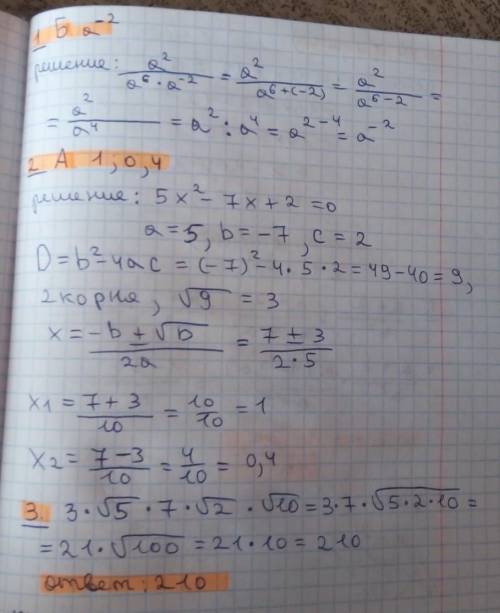 1 Б a⁻²
решение: a²/(a⁶ · a⁻²) = a²/(a⁶⁺⁽⁻²⁾) = a²/(a⁶⁻²) =
= a²/a⁴ = a² : a⁴ = a²⁻⁴ = a⁻²
2 А 1; 0,4
решение: 5x² - 7x + 2 = 0
a = 5, b = -7, c = 2
D = b² - 4ac = (-7)² - 4 · 5 · 2 = 49 - 40 = 9,
2 корня, √9 = 3
x = (-b ± √D)/(2a) = (7 ± 3)/(2 · 5)
x1 = (7 + 3)/10 = 10/10 = 1
x2 = (7 - 3)/10 = 4/10 = 0,4
3. 3 · √5 · 7 · √2 · √10 = 3 · 7 · √(5 · 2 · 10) =
= 21 · √100 = 21 · 10 = 210
ответ: 210